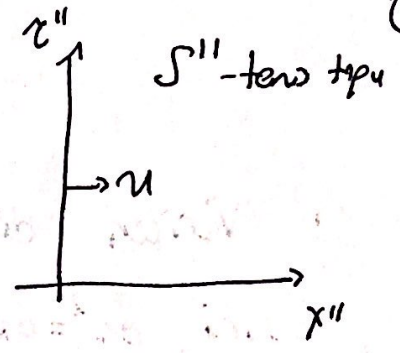 τ''
S''-тело три
u
x''